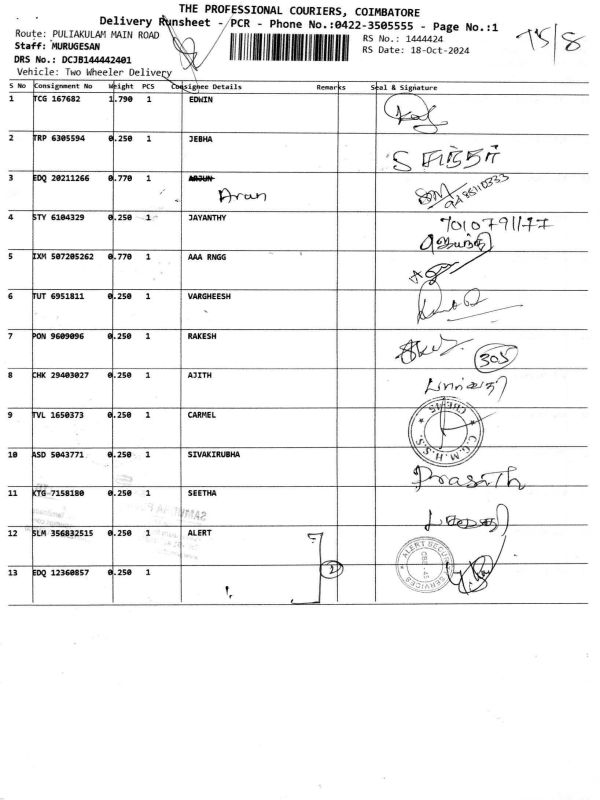 THE PROFESSIONAL COURIERS, COIMBATORE
Delivery Runsheet - PCR - Phone No.:0422-3505555 - Page No.:1
Route: PULIAKULAM MAIN ROAD
RS No.: 1444424
75/8
Staff: MURUGESAN
RS Date: 18-Oct-2024
DRS No.: DCJB144442401
Vehicle: Two Wheeler Delivery
S No Consignment No Weight PCS Consignee Details Remarks Seal & Signature
1 TCG 167682 1.790 1 EDWIN
2 TRP 6305594 0.250 1 JEBHA
3 EDQ 20211266 0.770 1 ARJUN
Arun
4 STY 6104329 0.250 1 JAYANTHY 7010791177
ஜெயந்தி
5 IXM 507205262 0.770 1 AAA RNGG
6 TUT 6951811 0.250 1 VARGHEESH
7 PON 9609096 0.250 1 RAKESH
305
8 CHK 29403027 0.250 1 AJITH
9 TVL 1650373 0.250 1 CARMEL
C.G.M.H.S.S. CBE-45
10 ASD 5043771 0.250 1 SIVAKIRUBHA
Prasath
11 KTG 7158180 0.250 1 SEETHA
12 SLM 356832515 0.250 1 ALERT
ALERT SECURITY SERVICES CBE-45
2
13 EDQ 12360857 0.250 1